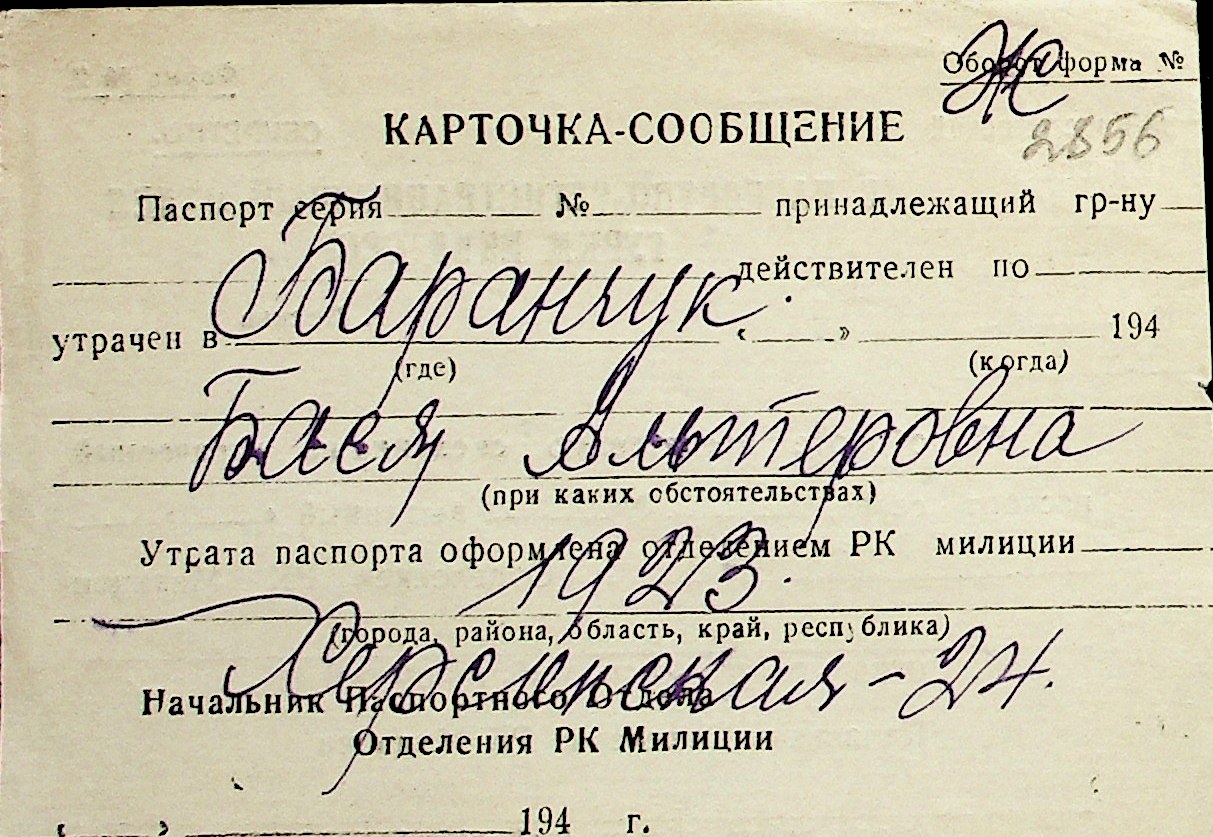 Оборот форма №
Ж
2856
КАРТОЧКА-СООБЩЕНИЕ
Паспорт серия № принадлежащий гр-ну
Баранчук
действителен по
утрачен в « » 194
(где) (когда)
Бася Альтеровна
(при каких обстоятельствах)
Утрата паспорта оформлена отделением РК милиции
1923
(города, района, область, край, республика)
Херсонская - 24.
Начальник Паспортного Отдела
Отделения РК Милиции
« » 194 г.